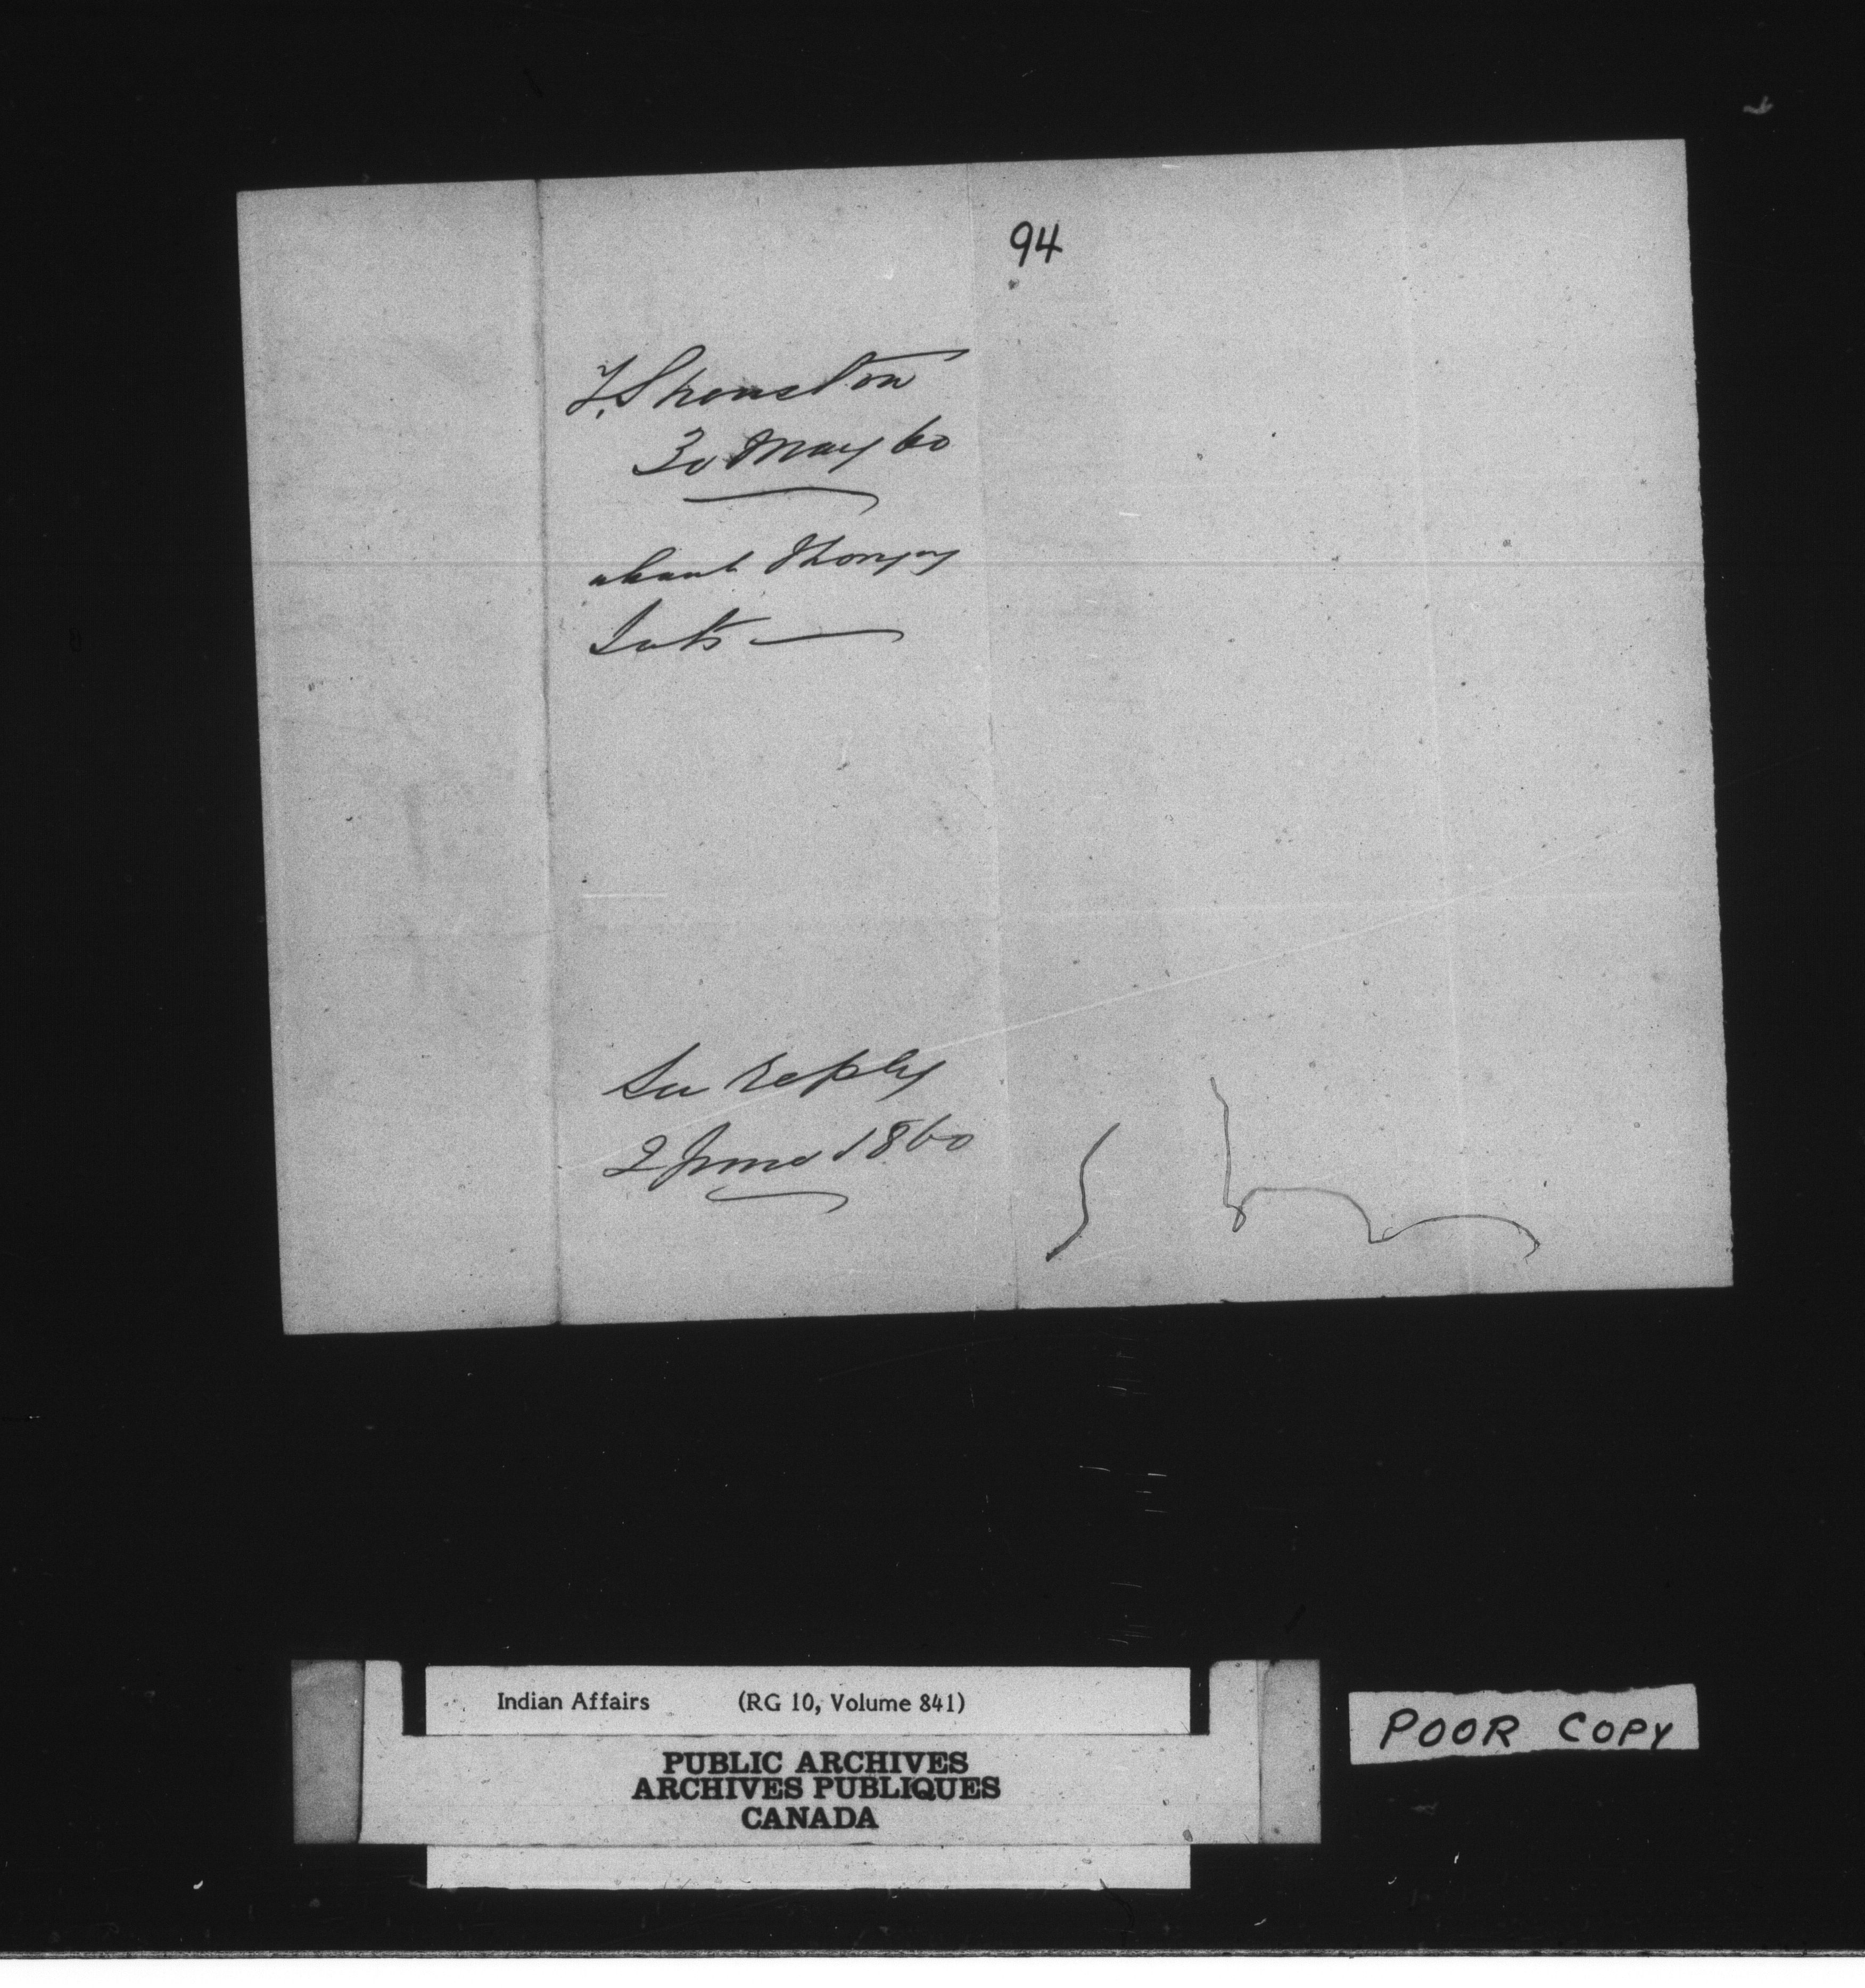 94
T. Shenston
30 May 60
about
Lots —
See reply
2 June 1860
Indian Affairs (RG 10, Volume 841)
PUBLIC ARCHIVES
ARCHIVES PUBLIQUES
CANADA
POOR COPY